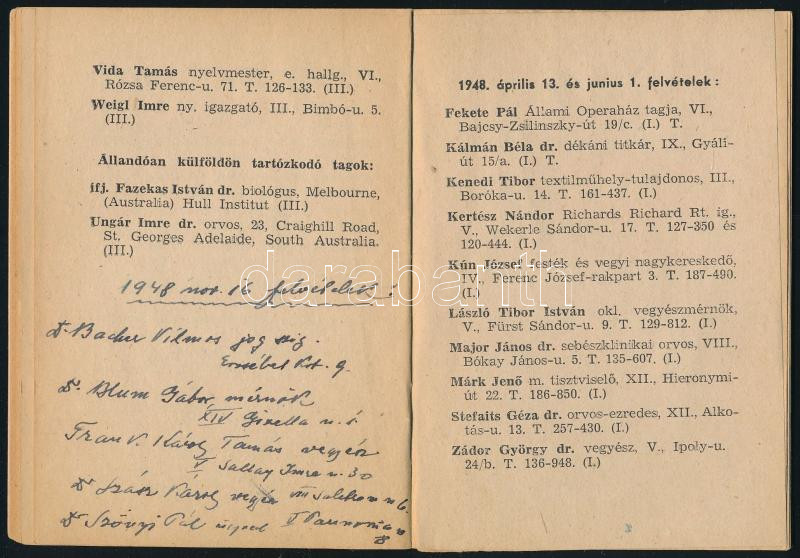 Vida Tamás nyelvmester, e. hallg., VI.,
Rózsa Ferenc-u. 71. T. 126-133. (III.)
Weigl Imre ny. igazgató, III., Bimbó-u. 5.
(III.)
Állandóan külföldön tartózkodó tagok:
ifj. Fazekas István dr. biológus, Melbourne,
(Australia) Hull Institut (III.)
Ungár Imre dr. orvos, 23, Craighill Road,
St. Georges Adelaide, South Australia.
(III.)
1948 nov. 16. felvételek:
Dr. Bacher Vilmos jog szig.
Erzsébet krt. 9.
Dr. Blum Gábor mérnök
XIV Gizella u.
Frank Károly Tamás vegyész
V Sallay Imre u. 30
Dr Szász Károly VIII
Dr Szőnyi Pál V Pannonia u
8
1948. április 13. és junius 1. felvételek:
Fekete Pál Állami Operaház tagja, VI.,
Bajcsy-Zsilinszky-út 19/c. (I.) T.
Kálmán Béla dr. dékáni titkár, IX., Gyáli-
út 15/a. (I.) T.
Kenedi Tibor textilműhely-tulajdonos, III.,
Boróka-u. 14. T. 161-437. (I.)
Kertész Nándor Richards Richard Rt. ig.,
V., Wekerle Sándor-u. 17. T. 127-350 és
120-444. (I.)
Kún József festék és vegyi nagykereskedő,
IV., Ferenc József-rakpart 3. T. 187-490.
(I.)
László Tibor István okl. vegyészmérnök,
V., Fürst Sándor-u. 9. T. 129-812. (I.)
Major János dr. sebészklinikai orvos, VIII.,
Bókay János-u. 5. T. 135-607. (I.)
Márk Jenő m. tisztviselő, XII., Hieronymi-
út 22. T. 186-850. (I.)
Stefaits Géza dr. orvos-ezredes, XII., Alko-
tás-u. 13. T. 257-430. (I.)
Zádor György dr. vegyész, V., Ipoly-u.
24/b. T. 136-948. (I.)
darabanth